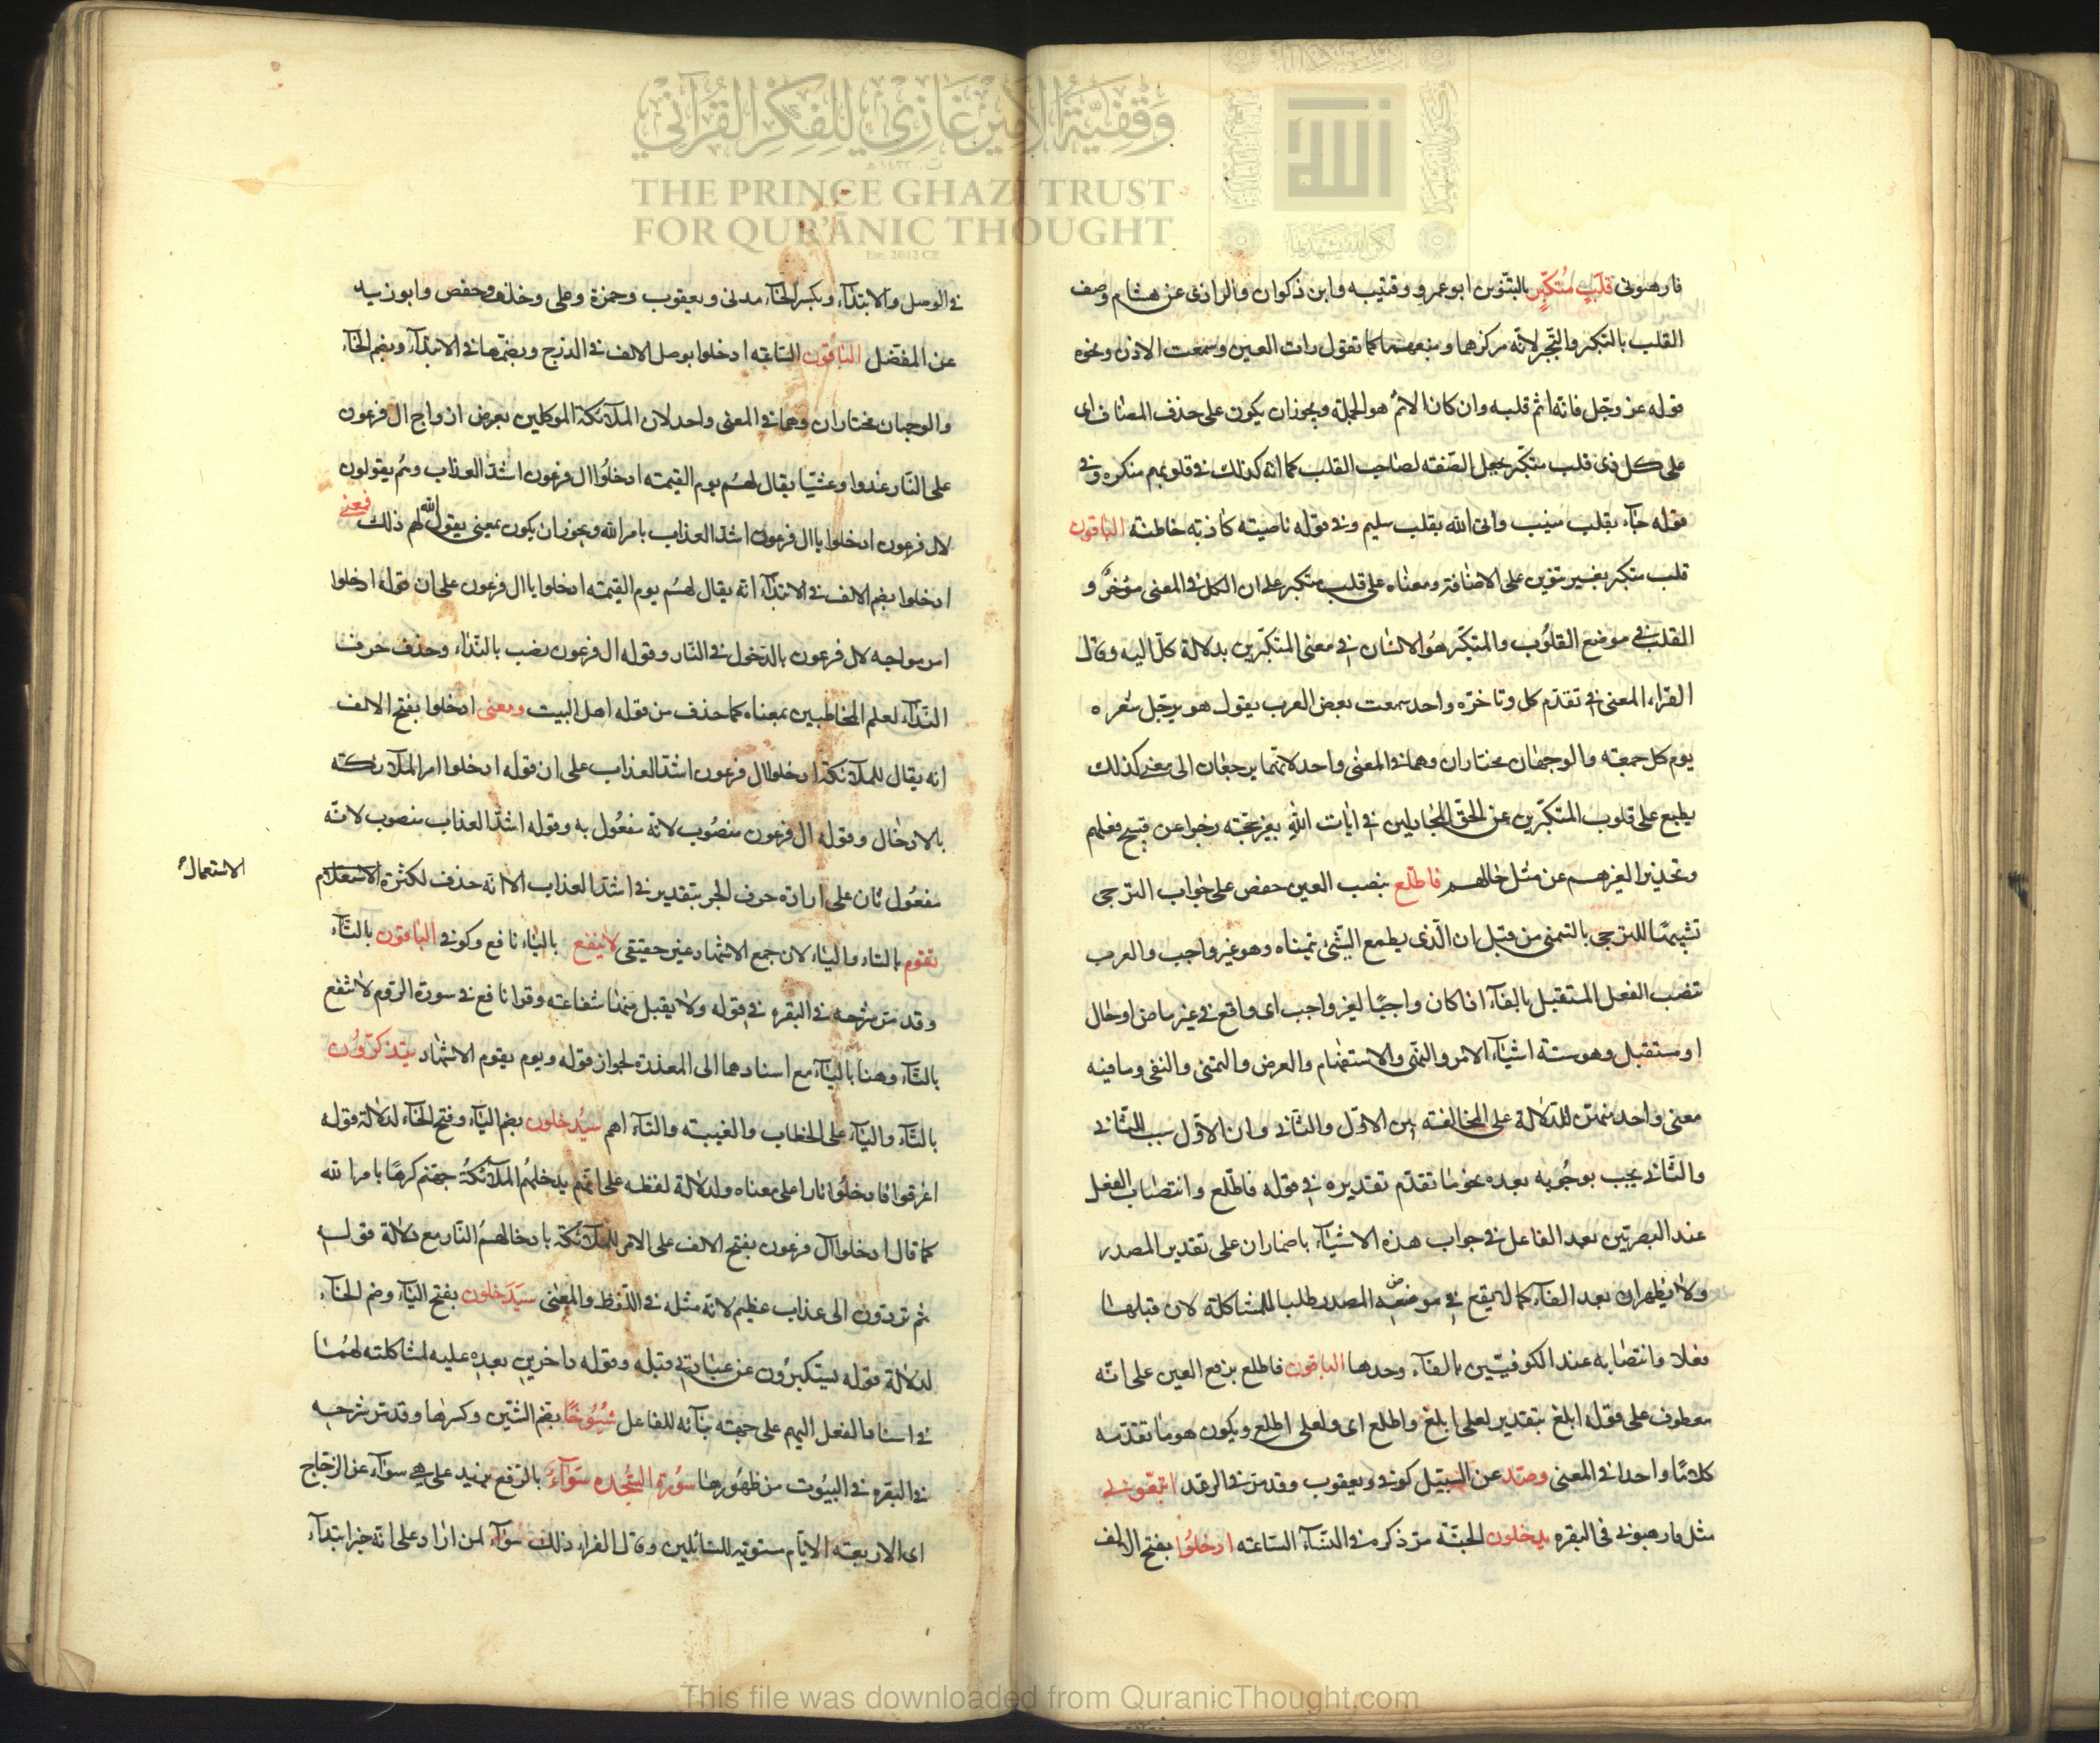 وقفية الأمير غازي للفكر القرآني
THE PRINCE GHAZI TRUST
FOR QUR'ĀNIC THOUGHT
Est. 2012 CE
الله
فارهبونی قلبٍ مُتكبّرٍ بالتنوين ابو عمرو وقتيبه وابن ذكوان والرازی عن هشام وصف
القلب بالتكبر والتجبر لانه مركزهما ومنبعهما كما تقول رات العين وسمعت الاذن ونحوه
قوله عز وجل فانه اثم قلبه وان كان الاثم هو الجملة ويجوز ان يكون على حذف المضاف ای
على كل ذی قلب متكبّر بجعل الصفته لصاحب القلب كما انه كذلك فی قلوبهم منكره وفی
قوله جآء بقلب منيب واتی الله بقلب سليم وفی قوله ناصيته كاذبه خاطئه الباقون
قلب متكبر بغير تنوين على الاضافة ومعناه على قلب متكبر على ان الكل فی المعنى مؤخر و
القلب فی موضع القلوب والمتكبّر هو الانسان فی معنى المتكبرين بدلالة كل اليه وقال
الفرّاء المعنى فی تقدّم كل وتاخرّه واحد سمعت بعض العرب يقول هو يرجّل شعره
يوم كل جمعته والوجهان مختاران وهما فی المعنى واحد لانهما يرجعان الى معنى كذلك
يطبع على قلوب المتكبّرين عن الحق المجادلين فی ايات الله بغير حجّته زجرا عن قبيح فعلهم
وتحذيرا لغيرهم عن مثل حالهم فاطّلع بنصب العين حفص على جواب الترجی
تشبيهًا للترجی بالتمنی من قبل ان الّذی يطمع الشّیئ يتمناه وهو غير واجب والعرب
تنصب الفعل المستقبل بالفآء اذا كان واجبًا لغير واجب ای واقع فی غير ماض او حال
او مستقبل وهو ستة اشيآء الامر والنهی والاستفهام والعرض والتمنی والنفی وما فيه
معنى واحد منهن للدلالة على المخالفته بين الاوّل والثانی وان الاوّل سبب للثّانی
والثّانی يجب بوجُوبه بعده نحو ما تقدّم تقديره فی قوله فاطّلع وانتصاب الفعل
عند البصريّين بعد الفاء على فی جواب هذه الاشيآء باضمار ان على تقدير المصدر
ولا يظهر ان بعد الفآء كما لم يقع فی موضعه المصدر طلبا للمشاكلة لان قبلها
فعلا وانتصابه عند الكوفيّين بالفآء وحدها الباقون فاطلع برفع العين على انّه
معطوف على قوله ابلغ بتقدير لعلی ابلغ واطلع ای ولعلی اطلع ويكون هو ما تقدّمه
كلامًا واحدا فی المعنى وصدّ عن السّبيل كوفی ويعقوب وقد مرّ فی الرعد اتبعونی
مثل فارهبونی فی البقره يدخلون الجنّة مرّ ذكره فی النسآء السّاعته ادخلُوا بفتح الالف
فی الوصل والابتدآء وبكسر الخآء مدنی ويعقوب وحمزة وعلی وخلف وحفص وابو زيد
عن المفضّل الباقون السّاعته ادخلوا بوصل الالف فی الدّرج وبضمّها فی الابتدآء وبضم الخآء
والوجهان مختاران وهما فی المعنى واحد لان الملآئكة الموكلين بعرض ارواح ال فرعون
على النّار غدوا وعشيّا يقال لهُم يوم القيمته ادخلُوا ال فرعون اشدّ العذاب وثم يقولون
لال فرعون ادخلوا يا ال فرعون اشدّ العذاب بامر الله ويجوز ان يكون بمعنى يقول الله لهم ذلك فمعنى
ادخلوا بضم الالف فی الابتدآء انّه يقال لهُم يوم القيمته ادخلوا يا ال فرعون على ان قوله ادخلوا
امر مواجه لال فرعون بالدّخول فی النّار وقوله ال فرعون نصب بالنّداء وحذف حرف
النّدآء لعلم المخاطبين بمعناه كما حذف من قوله اهل البيت ومعنى ادخلوا بفتح الالف
انه يقال للملآئكة ادخلوا ال فرعون اشدّ العذاب على ان قوله ادخلوا امر الملآئكته
بالادخال وقوله ال فرعون منصُوب لانه مفعُول به وقوله اشدّ العذاب منصوب لانّه
مفعُول ثان على ارادة حرف الجر بتقدير فی اشدّ العذاب الا انه حذف لكثرة الاستعلام
الاستعمال
تقوم بالتاء والياء لان جمع الاشهاد غير حقيقی لا ينفع بالياء نافع وكوفی الباقون بالتآء
وقد مرّ شرحه فی البقره فی قوله ولا يقبل منها شفاعته وقرا نافع فی سورة الروم لا تنفع
بالتآء وهنا باليآء مع اسنادهما الى المعذرة لجواز قوله ويوم يقوم الاشهاد يتذكرُون
بالتآء واليآء على الخطاب والغيبته والتآء اهم سيُدخلون بضم اليآء وفتح الخآء لدلالة قوله
اغرقوا فادخلُوا نارا على معناه ولدلالة لفظه على انّهم يدخلهُم الملآئكةُ جهنم كرهًا بامر الله
كما قال ادخلوا آل فرعون بفتح الالف على الامر للملآئكة بادخالهُم النّار مع دلالة قوله
ثم تردّون الى عذاب عظيم لانه مثله فی اللّفظ والمعنى سَيَدخلون بفتح اليآء وضم الخآء
لدلالة قوله يستكبرُون عن عبادتی قبله وقوله داخرين بعده عليه لمشاكلته لهُما
فی اسناد الفعل اليهم على جهته بنآئه للفاعل شيُوخًا بضم الشّين وكسرها وقد مرّ شرحه
فی البقره فی البيُوت من ظهُورها سُورة السّجُده سَوآءٌ بالرّفع يزيد على هی سوآء عن الزجّاج
ای الاربعته الايّام مستوية للسّائلين وقال الفراء ذلك سوآء لمن اراد على انه خبر ابتدآء
This file was downloaded from QuranicThought.com